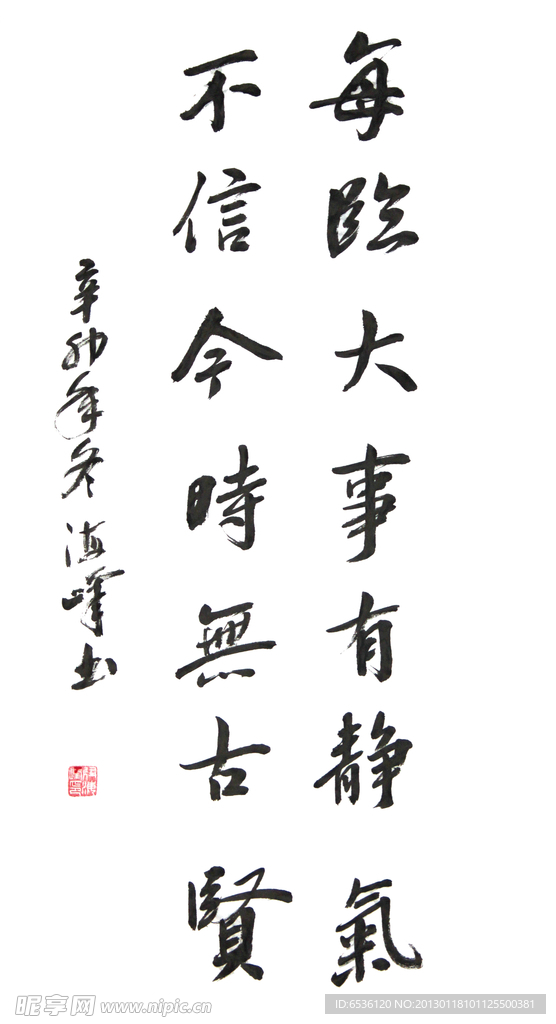 每臨大事有静氣
不信今時無古賢
辛卯年冬海峰书
昵享网 www.nipic.cn
ID:6536120 NO:20130118101125500381